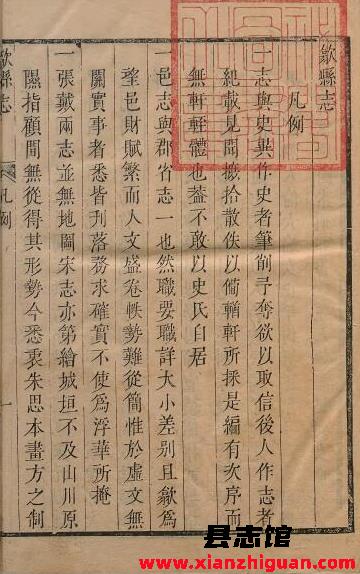 歙縣志
凡例
一志與史異作史者筆削予奪欲以取信後人作志者
紀載見聞摭拾散佚以備輶軒所採是編有次序而
無軒輊體也蓋不敢以史氏自居
一邑志與郡省志一也然職要職詳大小差别且歙爲
望邑財賦繁而人文盛卷帙勢難從簡惟於虛文無
關實事者悉皆刋落務求確實不使爲浮華所掩
一張戴兩志並無地圖宋志亦第繪城垣不及山川原
隰指顧間無從得其形勢今悉裒朱思本畫方之制
歙縣志
凡例
一
县志馆
www.xianzhiguan.com